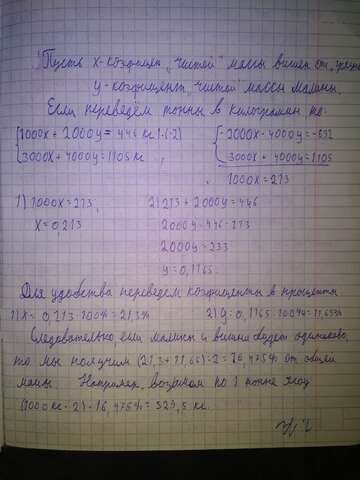 Пусть x - коэфицен. "чистой" массы вишен от
y - коэфицент "чистой" массы малины.
Если переведём тонны в килограммы то:
1000x + 2000y = 446 кг |·(-2)
3000x + 4000y = 1105 кг
-2000x - 4000y = -892
3000x + 4000y = 1105
1000x = 213
1) 1000x = 213
x = 0,213
2) 213 + 2000y = 446
2000y = 446 - 213
2000y = 233
y = 0,1165.
Для удобства переведём коэфиценты в проценты
1) x = 0,213 · 100% = 21,3%
2) y = 0,1165 · 100% = 11,65%
Следовательно, если малины и вишни будет одинаково,
то мы получим (21,3 + 11,65) : 2 = 16,475% от общей
массы. Например, возьмём по 1 тонне ягод
(1000 кг · 2) · 16,475% = 329,5 кг.